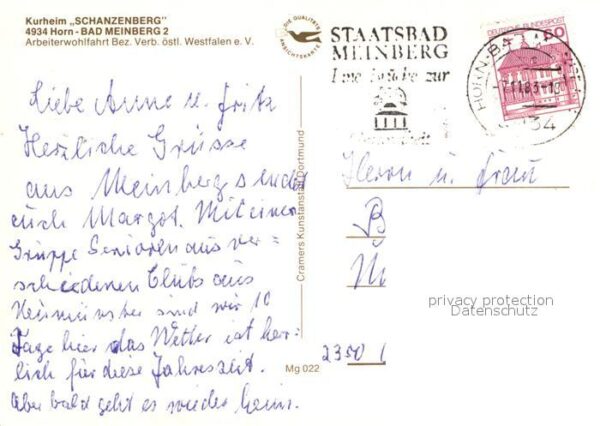 Kurheim „SCHANZENBERG"
4934 Horn - BAD MEINBERG 2
Arbeiterwohlfahrt Bez. Verb. östl. Westfalen e. V.
DIE QUALITÄTS
ANSICHTSKARTE
STAATSBAD
MEINBERG
Eine Brücke zur
DEUTSCHE BUNDESPOST
60
HORN-BA
-7.11.83-18
34
Liebe Anne u. Fritz
Herzliche Grüsse
aus Meinberg sendet
euch Margot. Mit einer
Gruppe Senioren aus ver=
schiedenen Clubs aus
Neumünster sind wir 10
Tage hier das Wetter ist herr=
lich für diese Jahreszeit.
Aber bald geht es wieder heim.
Cramers Kunstanstalt Dortmund
Mg 022
Herrn u. Frau
B
M
2350 1
privacy protection
Datenschutz